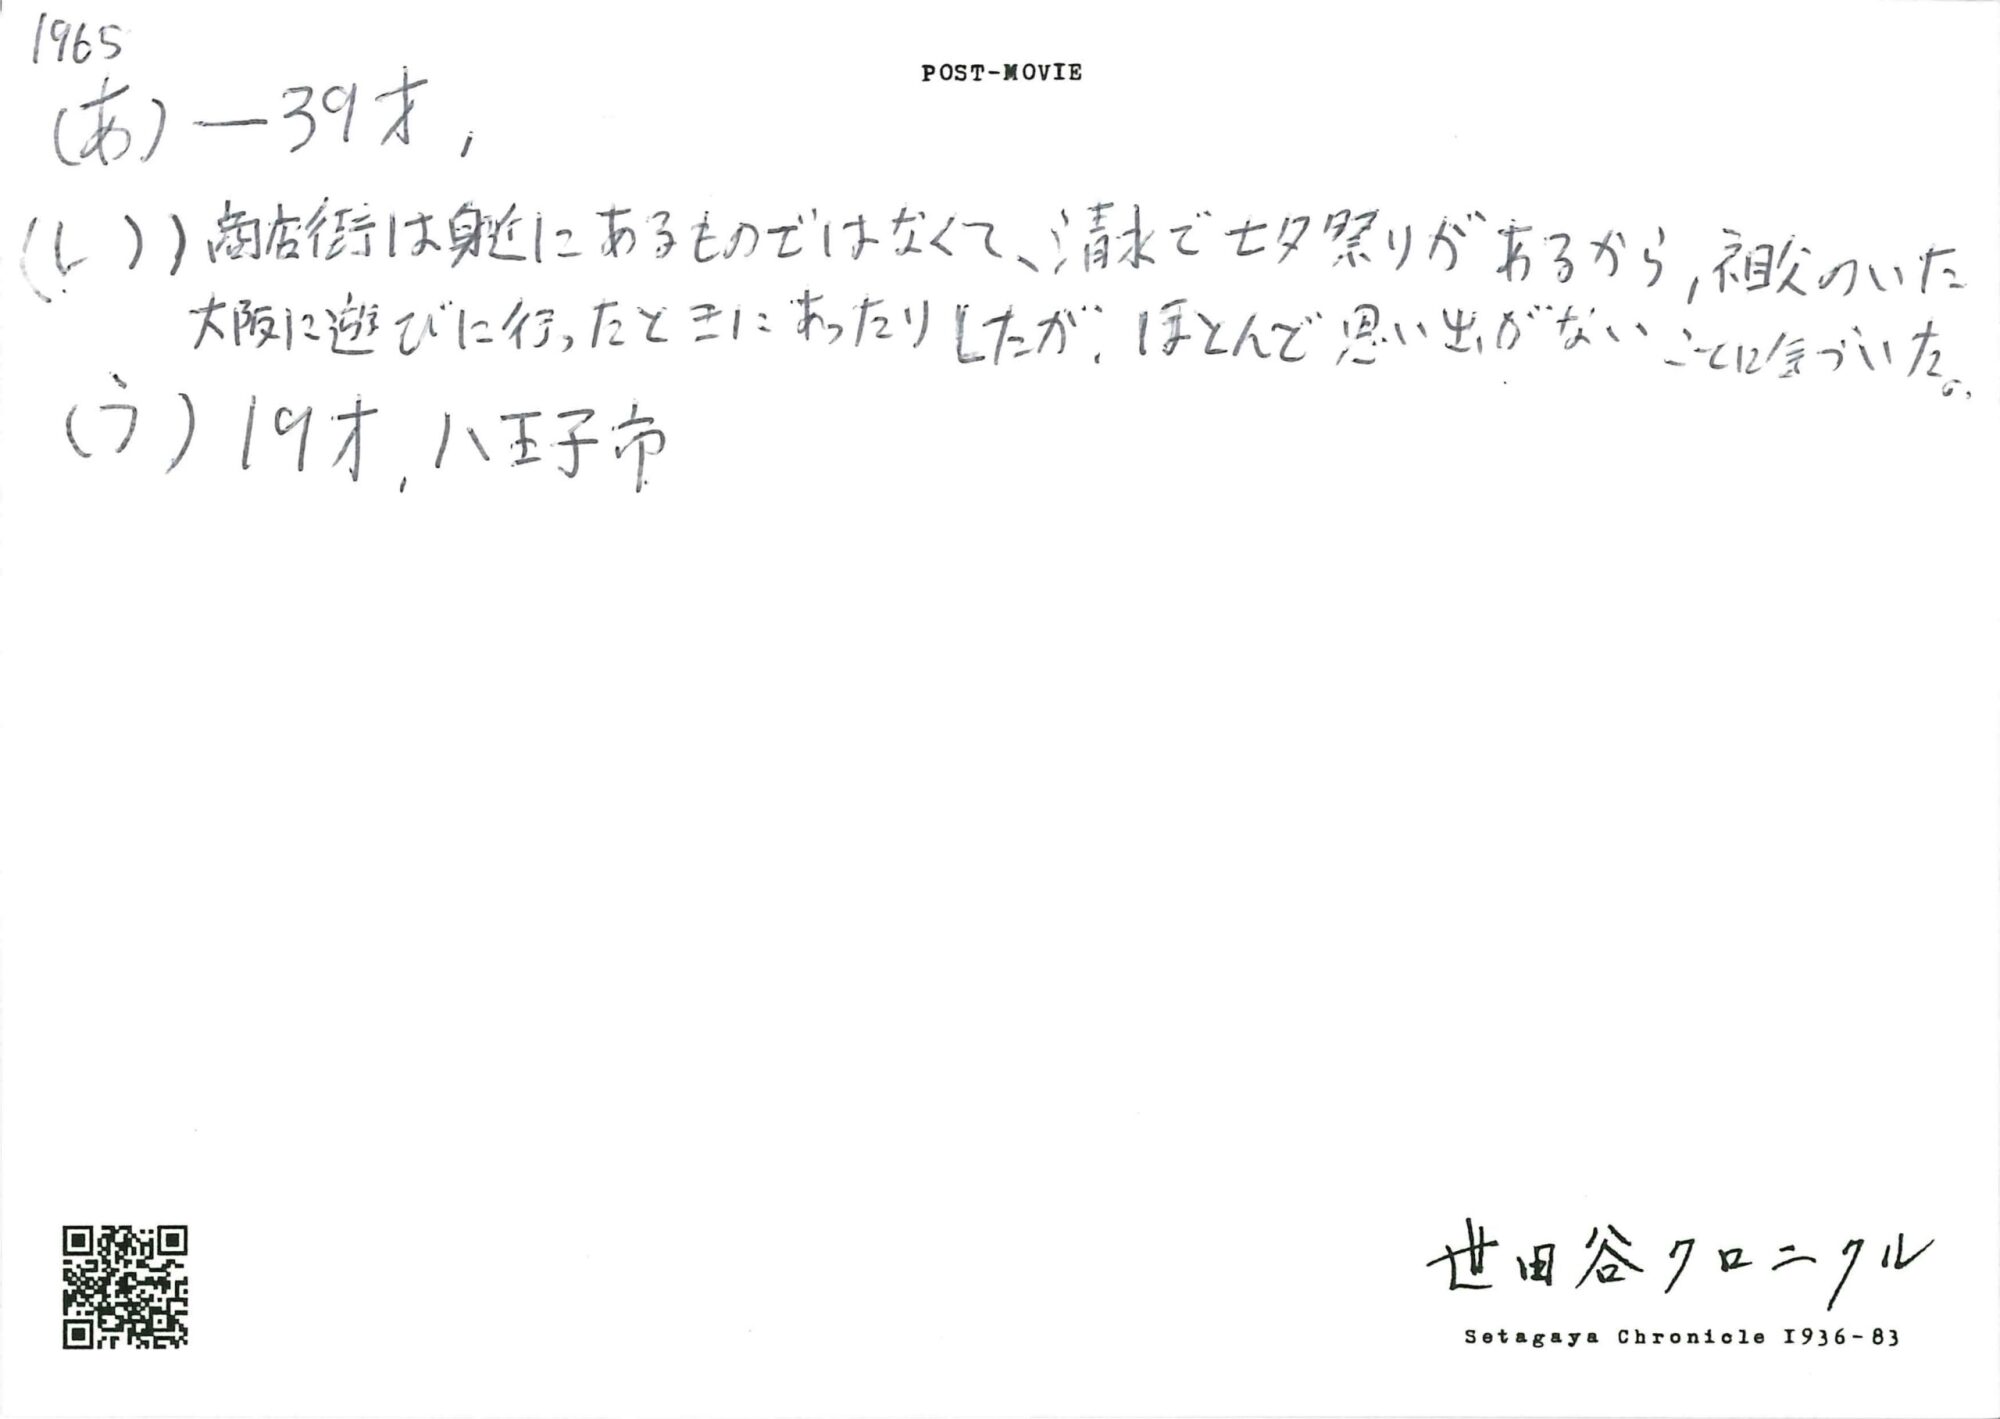 1965
POST-MOVIE
(あ) ー39才,
(い) 商店街は身近にあるものではなくて、清水で七夕祭りがあるから, 祖父のいた
大阪に遊びに行ったときにあったりしたが、ほとんど思い出がないことに気づいた。
(う) 19才, 八王子市
世田谷クロニクル
Setagaya Chronicle 1936-83